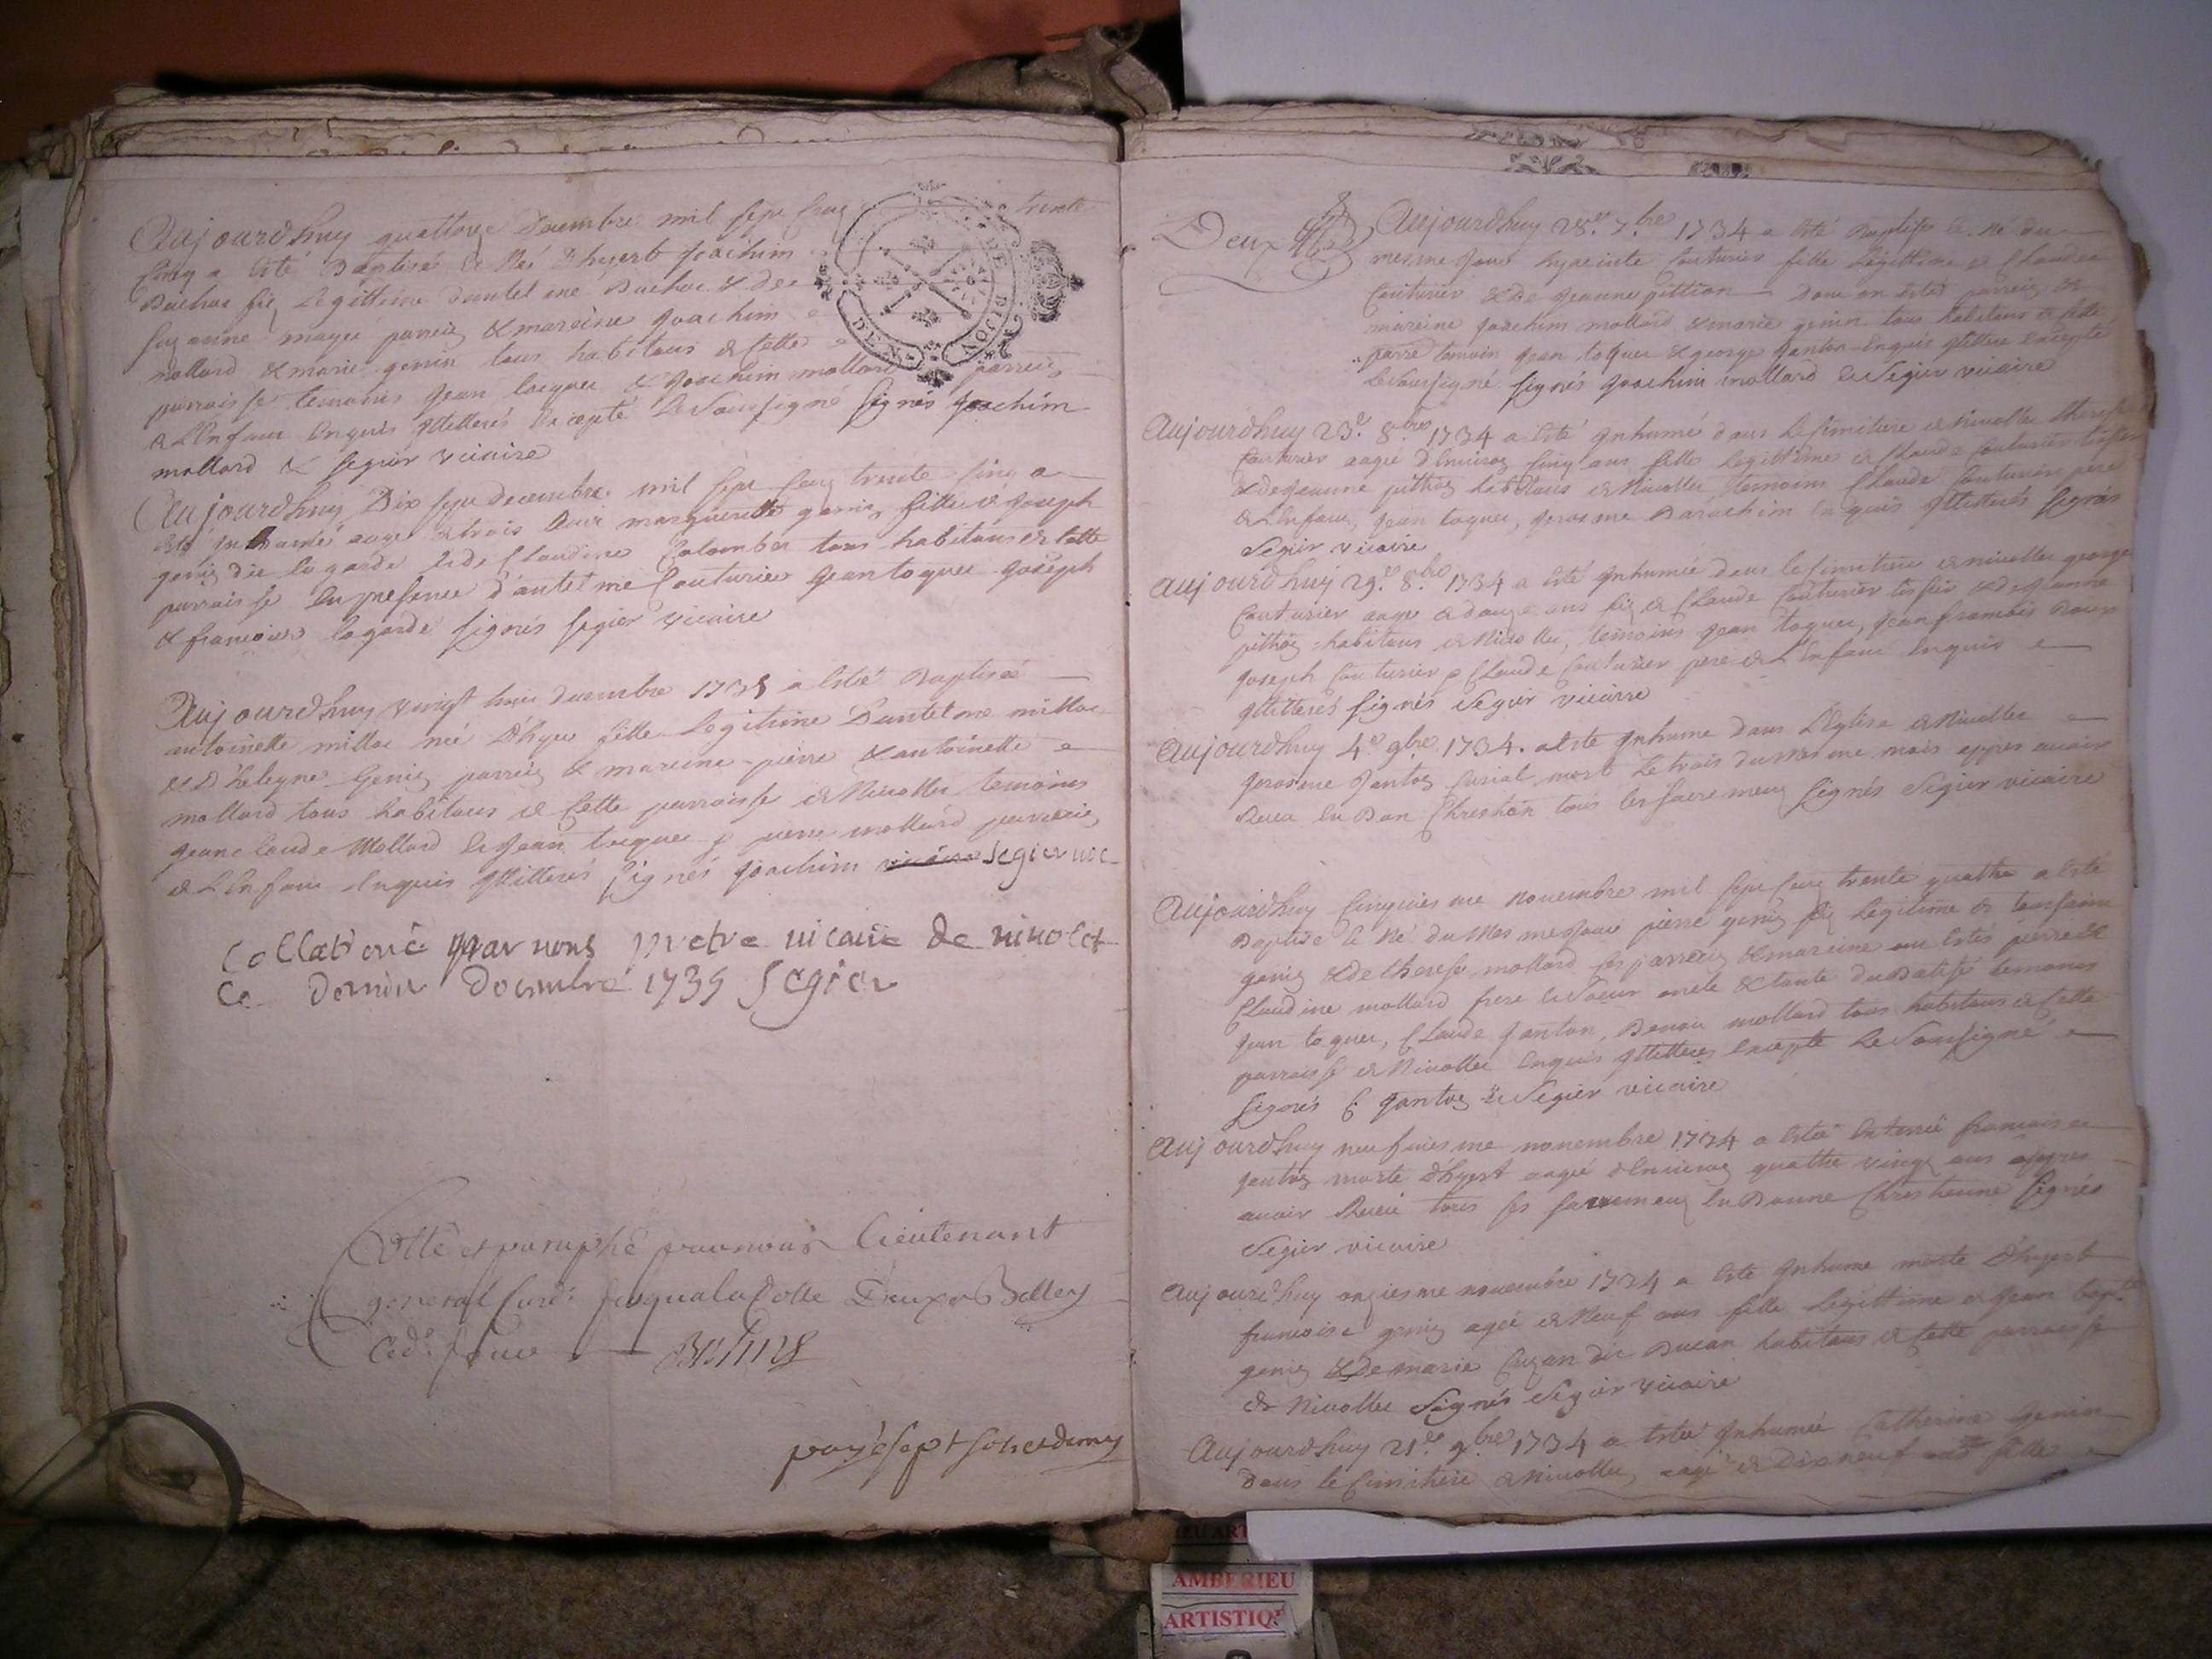 Aujourdhuy quattorze Decembre mil sept Cens trente
Cinq a esté Baptisé & Né Dhyert Joachim
Buchoz fis Legittime dantelme Buchoz & de
Suzanne mayer & mareine Joachim
mollard & marie genin tous habitans de Cette
parroisse temoins Jean toquer & Joachim mollard parreis
de L'Enfant Enquis Jllitterés Excepté Le Soussigné Signés Joachim
mollard & Segier vicaire
Aujourdhuy Dix sept decembre mil sept Cens trente Cinq a
esté Jnhumé aage de trois ans marguerite genis fille de Joseph
genis dit la garde & de Claudine Colomber tous habitans de Cette
parroisse En presence d'antelme Couturier Jean toquer Joseph
& francois lagarde signés Segier vicaire
Aujourdhuy vingt huit decembre 1735 a Esté Baptisée
antoinette millor née D'hyer fille Legitime D'antelme millor
et D'heleyne Genis parreis & mareine pierre & antoinette
mollard tous habitans de Cette parroisse de Nivollet temoins
Jean claude Mollard & Jean toquer & pierre mollard parreis
de L'Enfant Enquis Jllitterés signés Joachim vicaire Segier vic
Collationé par nous pretre vicaire de nivolet
Ce Dernier Decembre 1735 Segier
Cotté et paraphé par nous Lieutenant
general
payé sept sols et demy
DE DIJON
D.E.N.
Deux
Aujourdhuy 28e 7.bre 1734 a Esté Baptisée & Né du
mesme Jour hyacinte Couturier fille Legittime de Claude
Couturier & de Jeanne pittion dont on Estés parreis &
mareine Joachim mollard & marie genin tous habitans de Cette
parre temoin Jean toquer & george Janton Enquis Jllittere Excepté
Le Soussigné signés Joachim mollard & Segier vicaire
Aujourdhuy 23e 8.bre 1734 a Esté Jnhumé dans Le Simitiere de Nivollet therese
Couturier aagée d'Environ Cinq ans fille Legittime de Claude Couturier tissier
& de Jeanne pithioz habitans de Nivollet, temoins Claude Couturier pere
de L'Enfant, Jean toquer, Jerosme Barachin Enquis Jllitterés Signés
Segier vicaire
Aujourdhuy 29e 8.bre 1734 a Esté Jnhumée dans le Simitiere de nivollet george
Couturier aage de douze ans fis de Claude Couturier tissier & de Jeanne
pithioz habitans de Nivollet, temoins Jean toquer, Jean francois
Joseph Couturier & Claude Couturier pere de L'Enfant Enquis
Jllitterés signés Segier vicaire
Aujourdhuy 4e 9bre 1734. a Esté Jnhume dans L'Eglise de Nivollet
Jerosme Jantoz Curial mort Le trois du mesme mois appres avoir
Receu En Bon Chrestien tous les sacremens signés Segier vicaire
Aujourdhuy Cinquiesme novembre mil sept Cens trente quatre a Esté
Baptisé & Né du Mesme Jour pierre genis fis Legitime de toussaint
genis & de therese mollard ses parreis & mareine ont Estés pierre &
Claudine mollard frere & Soeur oncle & tante du Batisé temoins
Jean toquer, Claude Janton, Benoit mollard tous habitans de Cette
parroisse de Nivollet Enquis Jllitteres Excepte Le Soussigné
signés C Jantoz & Segier vicaire
Aujourdhuy neufviesme novembre 1734 a Esté Enterré francoise
Jantoz morte D'hyert aagée d'Environ quattre vingt ans appres
avoir Receu tous ses sacremens En Bonne Chrestienne signés
Segier vicaire
Aujourdhuy onziesme novembre 1734 a Esté Jnhume morte D'hyert
francoise genis agée de Neuf ans fille Legittime de Jean bapt.te
genis & de marie dit Ducan habitans de Cette parroisse
de Nivollet Signés Segier vicaire
Aujourdhuy 21e 9.bre 1734 a Esté Jnhumée Catherine Genin
Dans le Cimitiere de Nivollet aagé de Dix neuf ans fille
AMBERIEU
ARTISTIQ